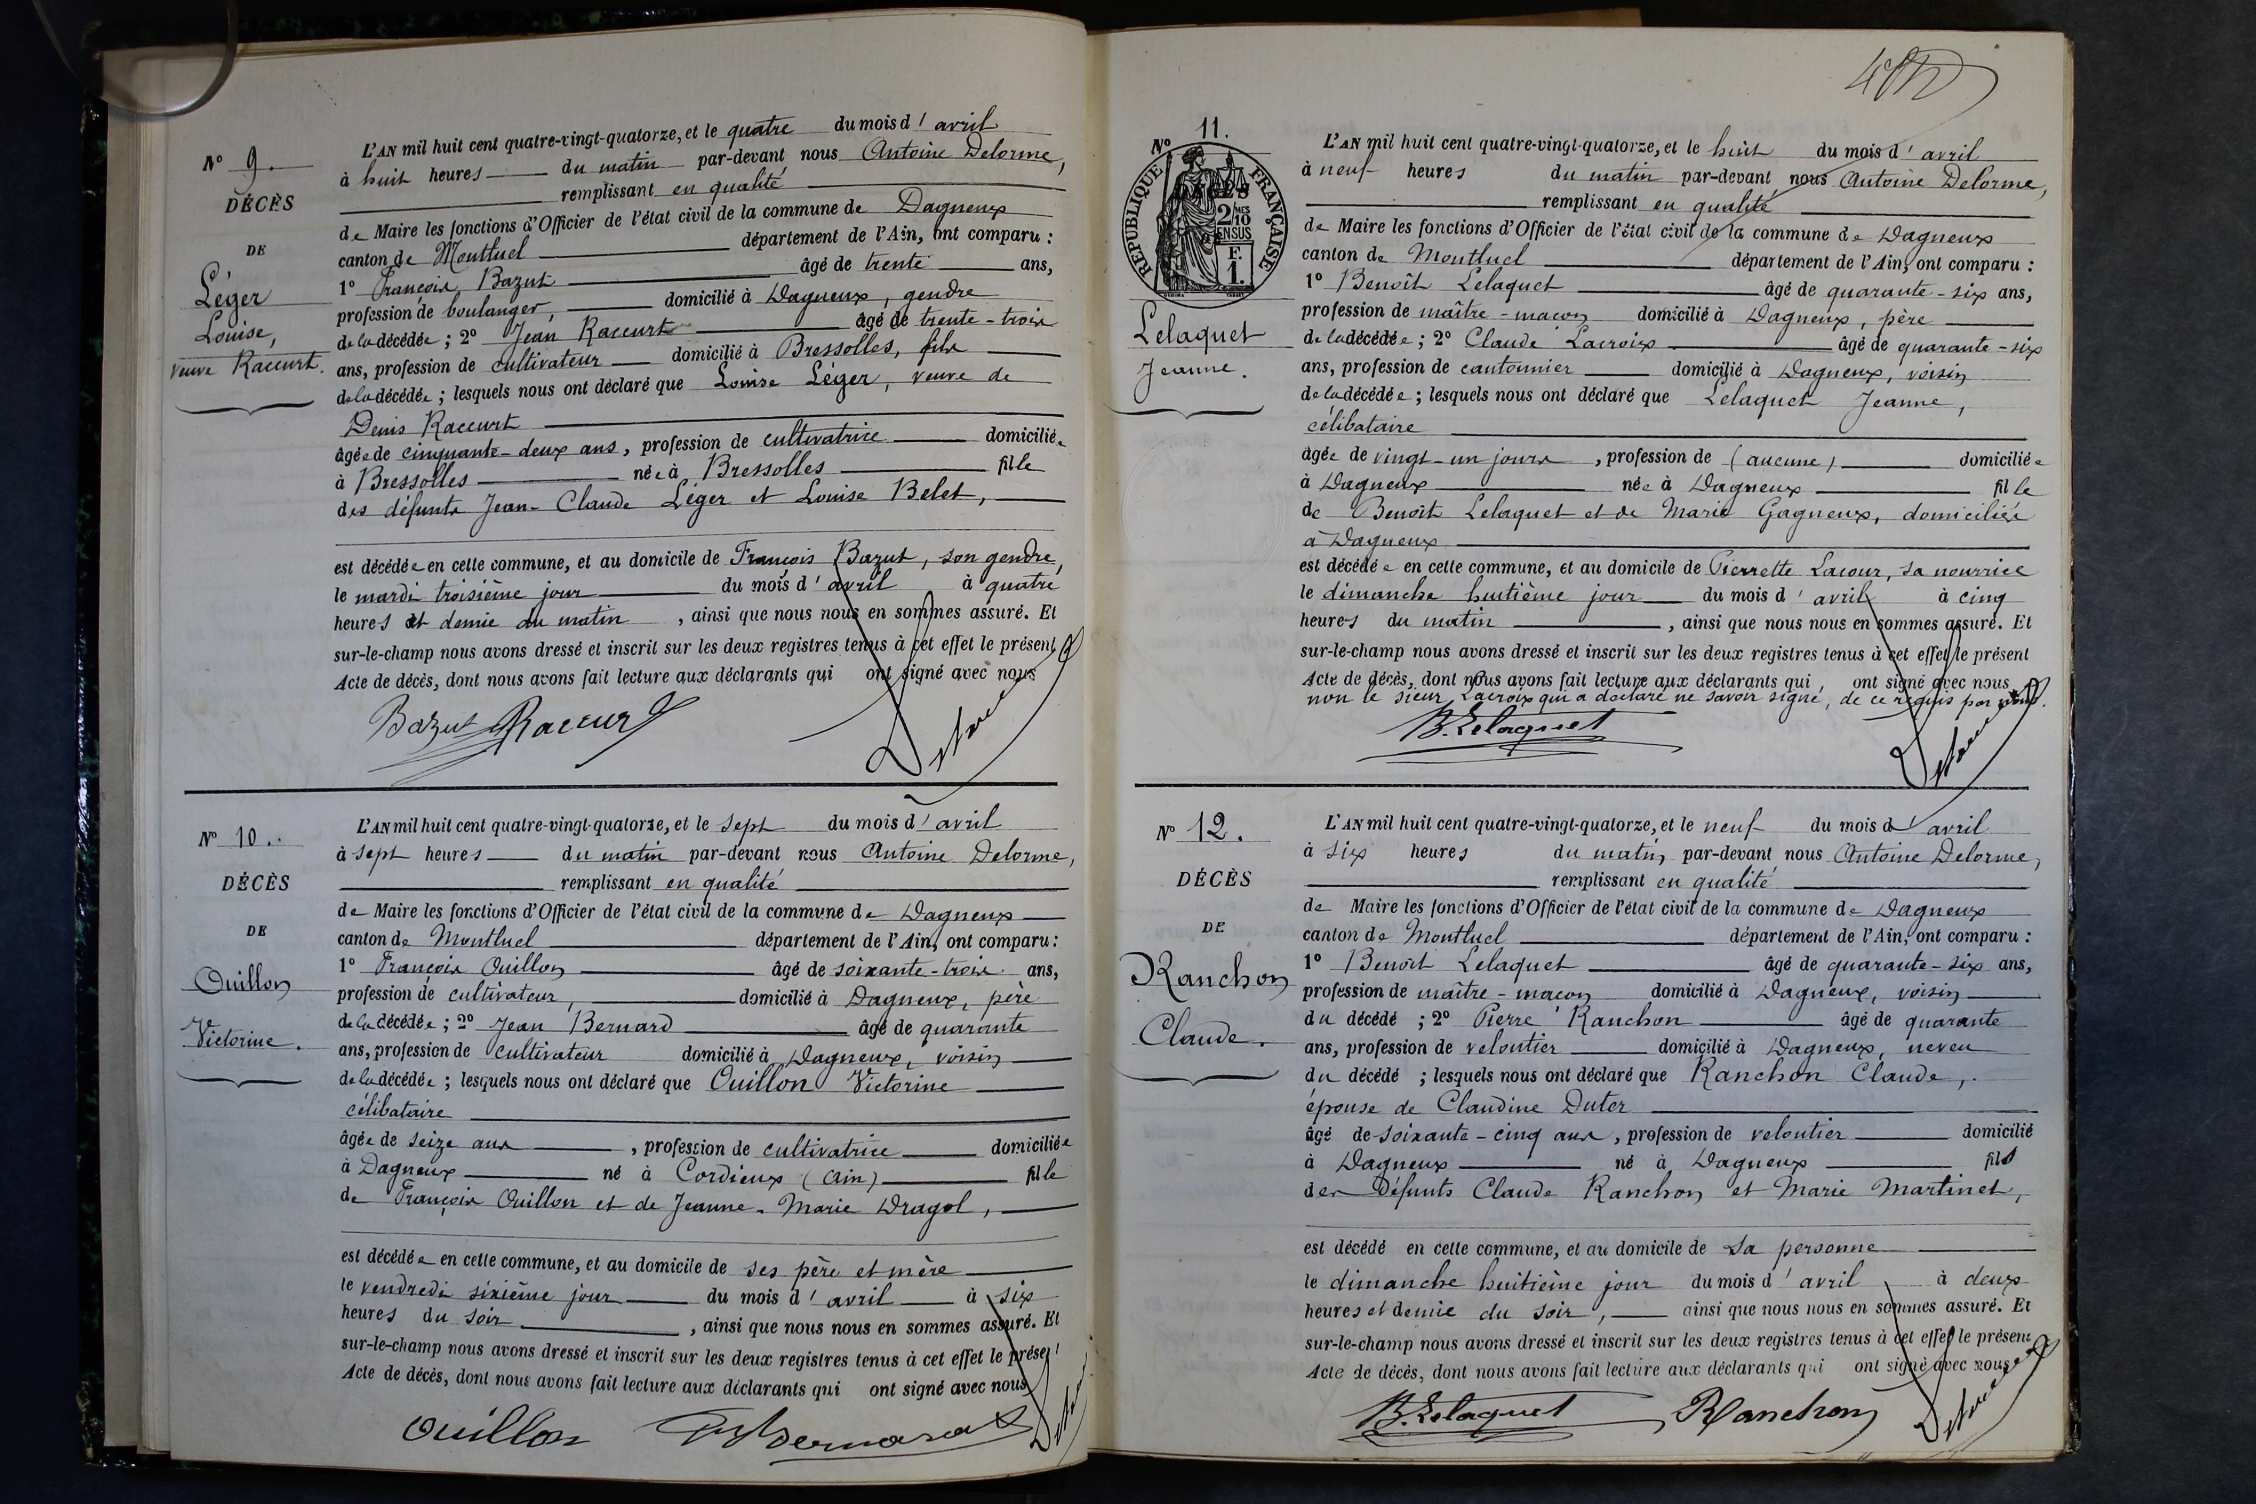 N° 9.
DÉCÈS
DE
Léger
Louise,
veuve Raccurt.
L'AN mil huit cent quatre-vingt-quatorze, et le quatre du mois d'avril
à huit heures du matin par-devant nous Antoine Delorme,
remplissant en qualité
de Maire les fonctions d'Officier de l'état civil de la commune de Dagneux
canton de Montluel département de l'Ain, ont comparu :
1° François Bazut âgé de trente ans,
profession de boulanger, domicilié à Dagneux, gendre
de la décédée ; 2° Jean Raccurt âgé de trente-trois
ans, profession de cultivateur domicilié à Bressolles, fils
de la décédée ; lesquels nous ont déclaré que Louise Léger, veuve de
Denis Raccurt
âgée de cinquante-deux ans, profession de cultivatrice domiciliée
à Bressolles née à Bressolles fille
des défunts Jean-Claude Léger et Louise Belet,
est décédée en cette commune, et au domicile de François Bazut, son gendre,
le mardi troisième jour du mois d'avril à quatre
heures et demie du matin, ainsi que nous nous en sommes assuré. Et
sur-le-champ nous avons dressé et inscrit sur les deux registres tenus à cet effet le présent
Acte de décès, dont nous avons fait lecture aux déclarants qui ont signé avec nous
Bazut Raccurt Delorme
N° 10.
DÉCÈS
DE
Ouillon
Victorine.
L'AN mil huit cent quatre-vingt-quatorze, et le sept du mois d'avril
à sept heures du matin par-devant nous Antoine Delorme,
remplissant en qualité
de Maire les fonctions d'Officier de l'état civil de la commune de Dagneux
canton de Montluel département de l'Ain, ont comparu :
1° François Ouillon âgé de soixante-trois ans,
profession de cultivateur, domicilié à Dagneux, père
de la décédée ; 2° Jean Bernard âgé de quarante
ans, profession de cultivateur domicilié à Dagneux, voisin
de la décédée ; lesquels nous ont déclaré que Ouillon Victorine
célibataire
âgée de seize ans, profession de cultivatrice domiciliée
à Dagneux né à Cordieux (Ain) fille
de François Ouillon et de Jeanne-Marie Dragol,
est décédée en cette commune, et au domicile de ses père et mère
le vendredi sixième jour du mois d'avril à six
heures du soir, ainsi que nous nous en sommes assuré. Et
sur-le-champ nous avons dressé et inscrit sur les deux registres tenus à cet effet le présent
Acte de décès, dont nous avons fait lecture aux déclarants qui ont signé avec nous
Ouillon Bernard
N° 11.
RÉPUBLIQUE FRANÇAISE
2/10MES
EN SUS
F.
1.
Lelaquet
Jeanne.
L'AN mil huit cent quatre-vingt-quatorze, et le huit du mois d'avril
à neuf heures du matin par-devant nous Antoine Delorme,
remplissant en qualité
de Maire les fonctions d'Officier de l'état civil de la commune de Dagneux
canton de Montluel département de l'Ain, ont comparu :
1° Benoît Lelaquet âgé de quarante-six ans,
profession de maître-maçon domicilié à Dagneux, père
de la décédée ; 2° Claude Lacroix âgé de quarante-six
ans, profession de cantonnier domicilié à Dagneux, voisin
de la décédée ; lesquels nous ont déclaré que Lelaquet Jeanne,
célibataire
âgée de vingt-un jours, profession de (aucune) domiciliée
à Dagneux née à Dagneux fille
de Benoît Lelaquet et de Marie Gagneux, domiciliés
à Dagneux
est décédée en cette commune, et au domicile de Pierrette Lacour, sa nourrice
le dimanche huitième jour du mois d'avril à cinq
heures du matin, ainsi que nous nous en sommes assuré. Et
sur-le-champ nous avons dressé et inscrit sur les deux registres tenus à cet effet le présent
Acte de décès, dont nous avons fait lecture aux déclarants qui ont signé avec nous
non le sieur Lacroix qui a déclaré ne savoir signé, de ce requis par nous.
B. Lelaquet Delorme
N° 12.
DÉCÈS
DE
Ranchon
Claude.
L'AN mil huit cent quatre-vingt-quatorze, et le neuf du mois d'avril
à six heures du matin par-devant nous Antoine Delorme,
remplissant en qualité
de Maire les fonctions d'Officier de l'état civil de la commune de Dagneux
canton de Montluel département de l'Ain, ont comparu :
1° Benoît Lelaquet âgé de quarante-six ans,
profession de maître-maçon domicilié à Dagneux, voisin
du décédé ; 2° Pierre Ranchon âgé de quarante
ans, profession de veloutier domicilié à Dagneux, neveu
du décédé ; lesquels nous ont déclaré que Ranchon Claude,
épouse de Claudine Duter
âgé de soixante-cinq ans, profession de veloutier domicilié
à Dagneux né à Dagneux fils
des défunts Claude Ranchon et Marie Martinet,
est décédé en cette commune, et au domicile de sa personne
le dimanche huitième jour du mois d'avril à deux
heures et demie du soir, ainsi que nous nous en sommes assuré. Et
sur-le-champ nous avons dressé et inscrit sur les deux registres tenus à cet effet le présent
Acte de décès, dont nous avons fait lecture aux déclarants qui ont signé avec nous
B. Lelaquet Ranchon Delorme